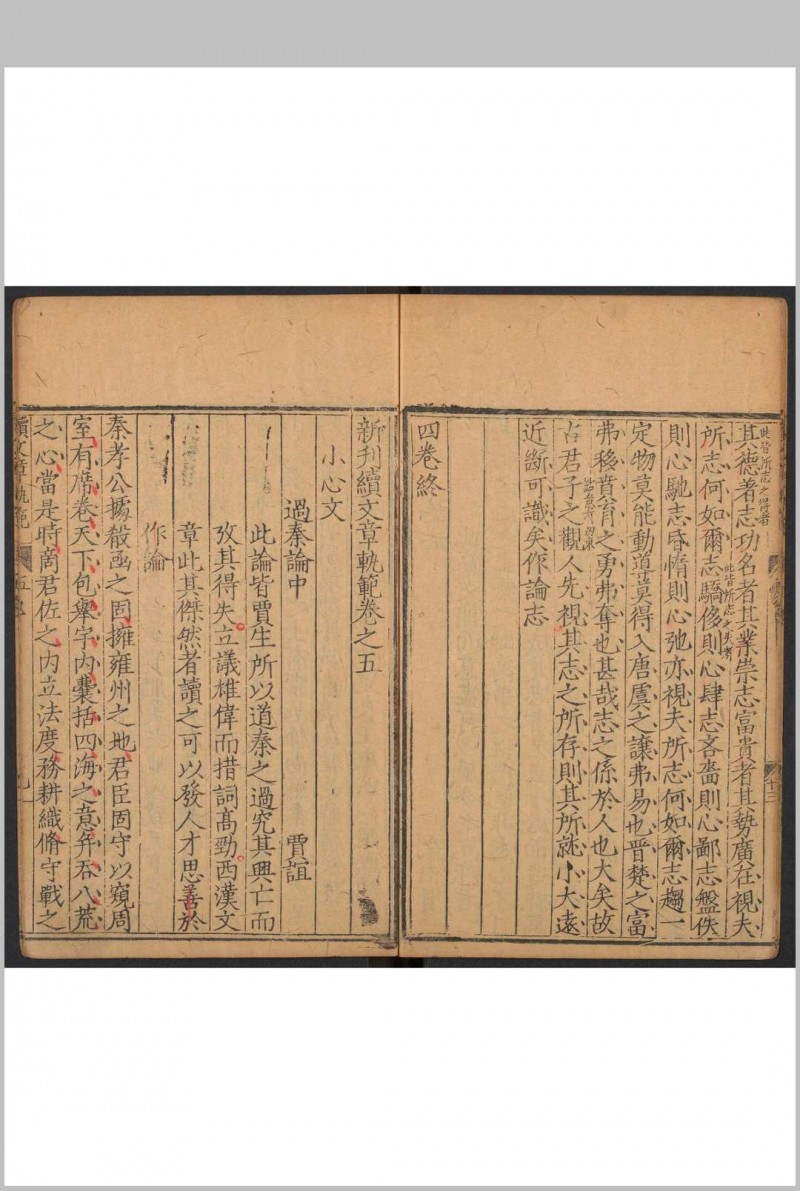 此皆所志之得者
其德者志功名者其業崇志富貴者其勢廣在視夫
所志何如爾志驕侈則心肆志吝嗇則心鄙志盤佚
此皆所志之失者
則心馳志昏惰則心弛亦視夫所志何如爾志趨一
定物莫能動導莫得入唐虞之讓弗易也晉楚之富
弗移賁育之勇弗奪也甚哉志之係於人也大矣故
古君子之觀人先視其志之所存則其所就小大遠
近斷可識矣作論志
四卷終
十三
新刊續文章軌範卷之五
小心文
過秦論中
賈誼
此論皆賈生所以道秦之過究其興亡而
攷其得失立議雄偉而措詞高勁西漢文
章此其傑然者讀之可以發人才思善於
作論
秦孝公據殽函之固擁雍州之地君臣固守以窺周
室有席卷天下包舉宇内囊括四海之意并吞八荒
之心當是時商君佐之内立法度務耕織脩守戰之
續文章軌範